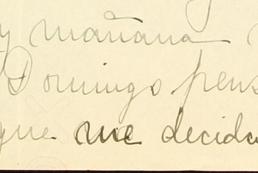 y mañana
Domingo pens
que me decida